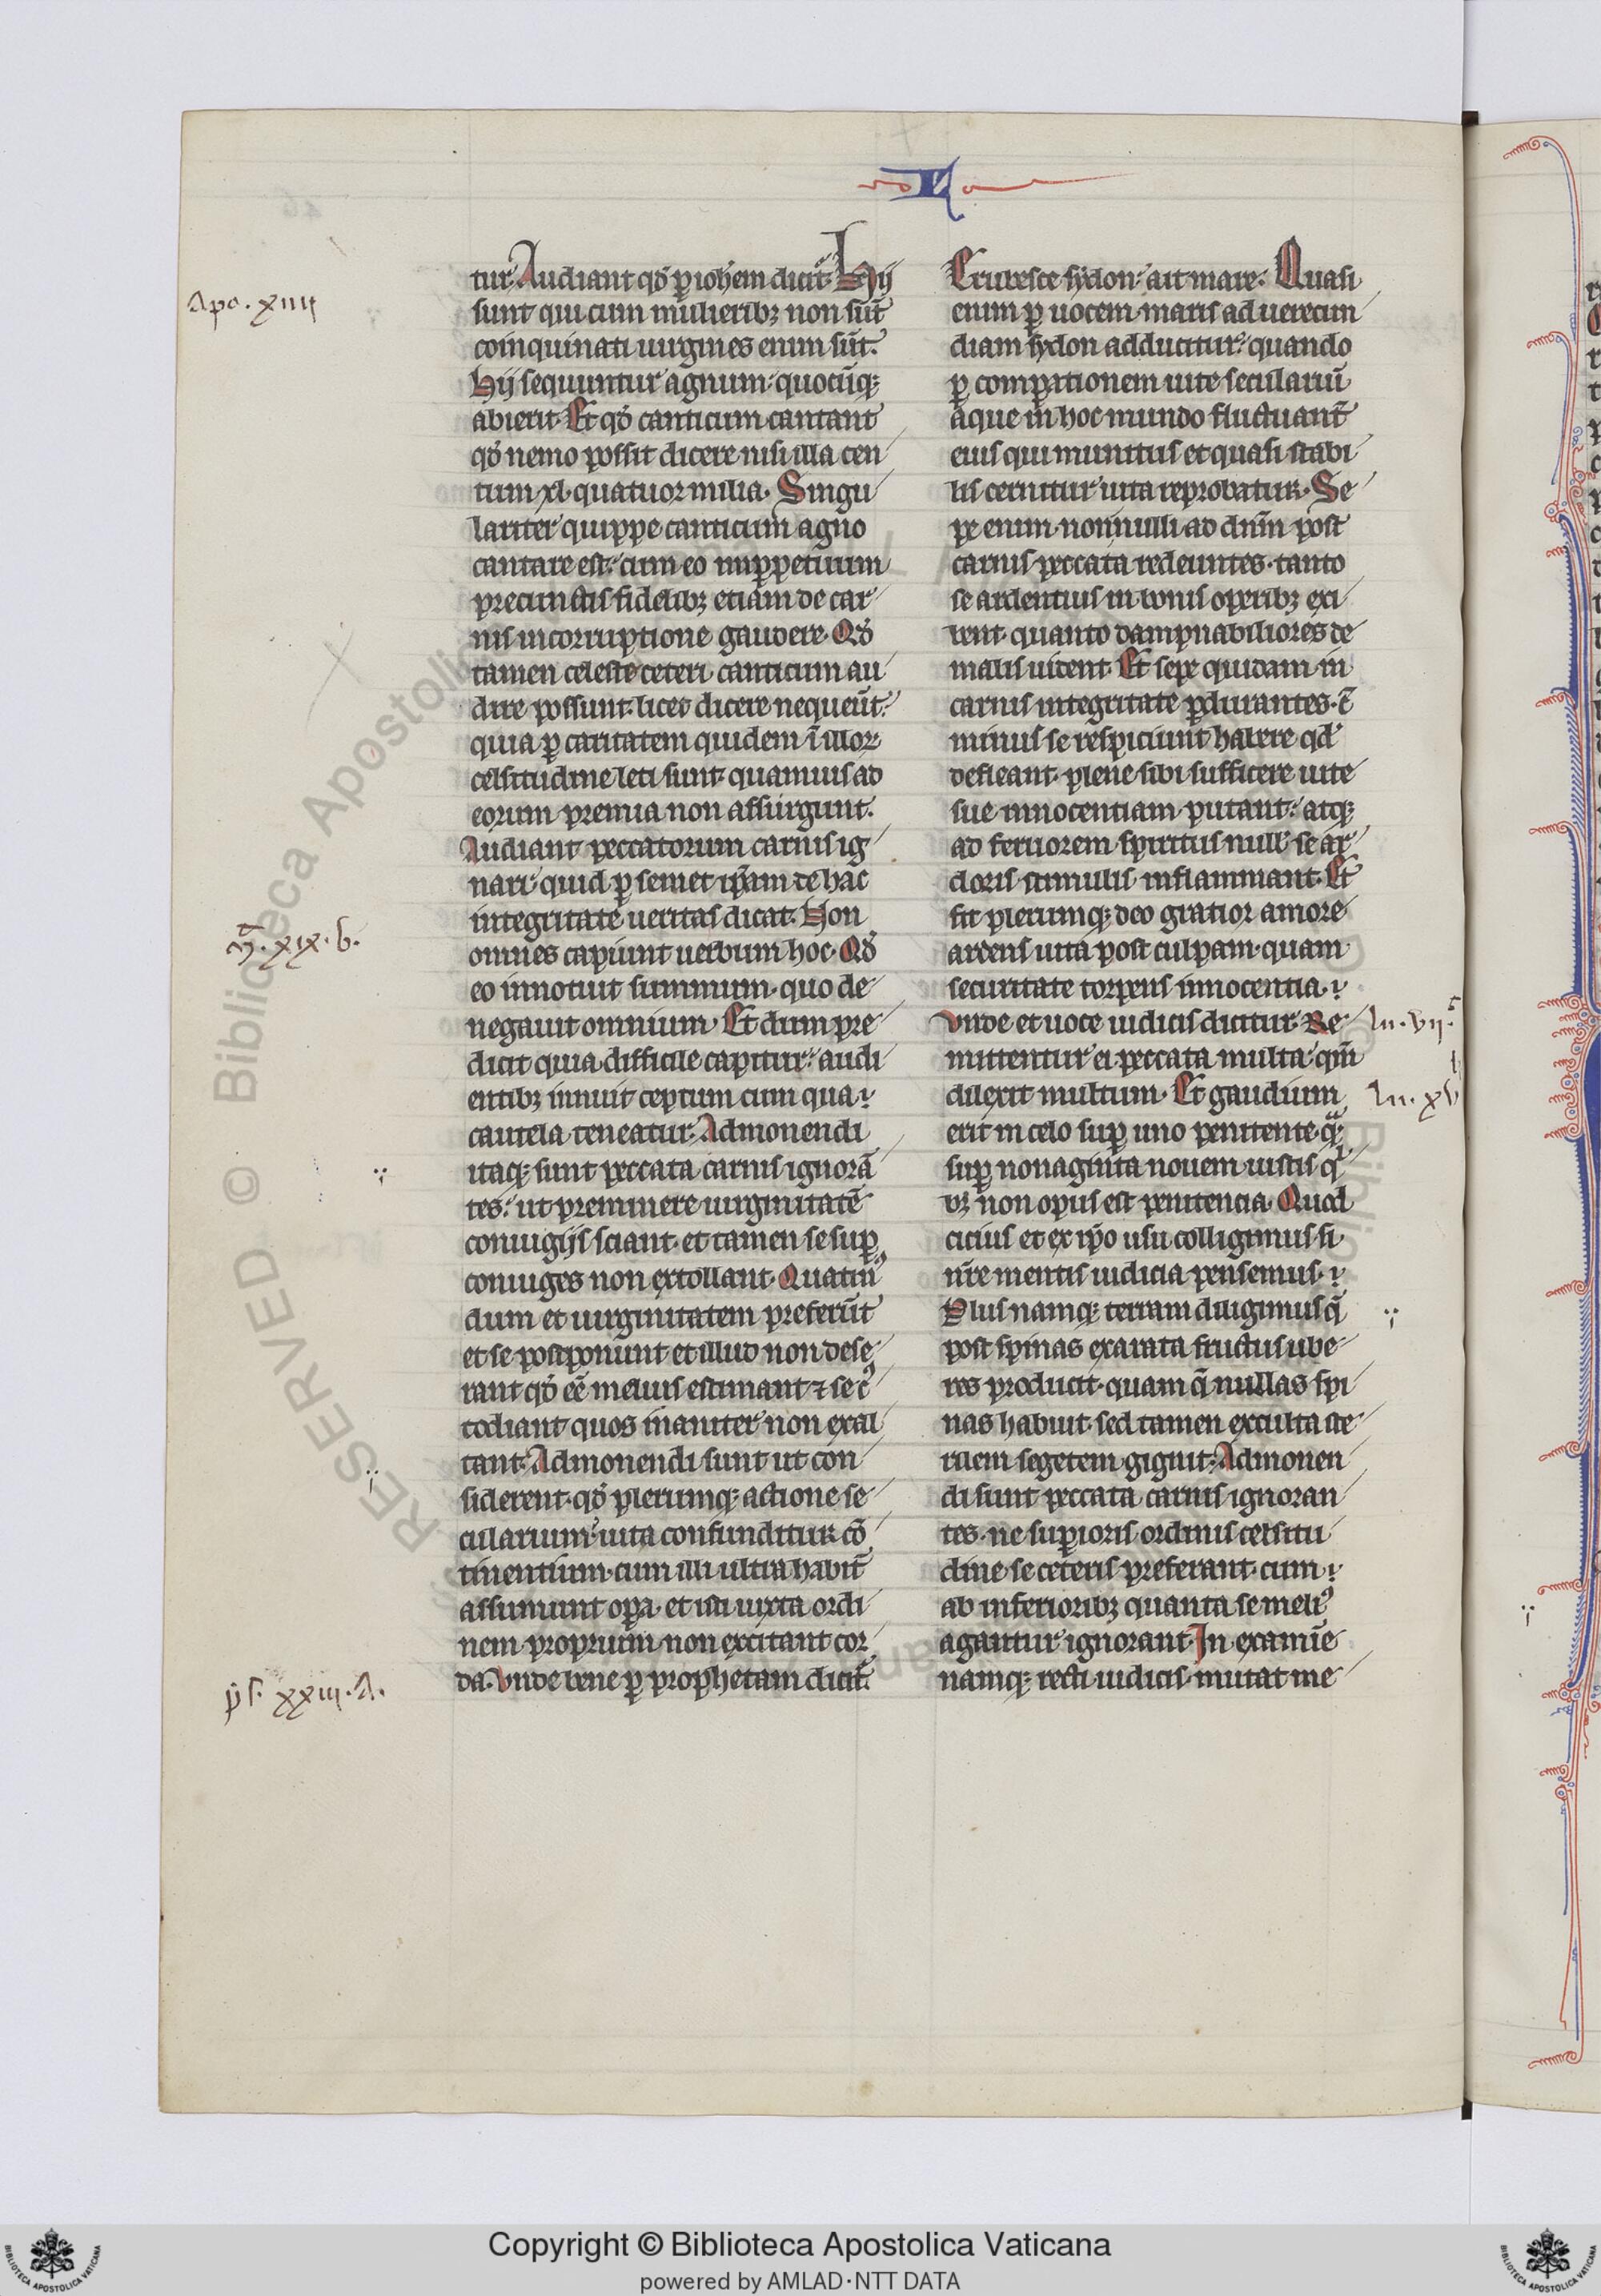 Apo. xiiii
tur. Audiant qd̓ ꝑ ioh̓em dicit̃. Hij
sunt qui cum mulieribꝫ non sũt
coinquinati uirgines enim sũt.
Hij sequuntur agnum quocũqꝫ
abierit. Et qd̓ canticum cantant
qd̓ nemo possit dicere nisi illa cen
tum xl. quatuor milia. Singu
lariter quippe canticum agno
cantare est. cum eo inꝑpetuum
precunctis fidelibꝫ etiam de car
nis incorruptione gaudere. Qd̓
tamen celeste ceteri canticum au
dire possunt. licet dicere nequeũt.
quia ꝑ caritatem quidem ĩ illoꝝ
celsitudine leti sunt. quamuis ad
eorum premia non assurgunt.
Audiant peccatorum carnis ig
nari quid ꝑ semet ip̃am de hac
integritate ueritas dicat. Non
omnes capiunt uerbum hoc. Qd̓
eo innotuit summum. quo de
negauit omnium. Et dum pre
dicit quia difficile capitur. audi
entibꝫ innuit ceptum cum qua
cautela teneatur. Admonendi
itaqꝫ sunt peccata carnis ignorã
tes. ut preminere uirginitatẽ
coniugijs sciant. et tamen se suꝑ
coniuges non extollant. Quatinꝰ
dum et uirginitatem preferũt
et se postponunt et illud non dese
rant qd̓ eẽ melius estimant ⁊ se cꝰ
todiant quos inaniter non exal
tant. Admonendi sunt ut con
siderent. qd̓ plerumqꝫ actione se
cularium uita confunditur cõ
tinentium. cum illi ultra habit̃
assumunt oꝑa. et isti iuxta ordi
nem proprium non excitant cor
da. Vnde bene ꝑ prophetam dicit̃.
m̃. xix. b.
ps. xxiii. A.
Erubesce sydon ait mare. Quasi
enim ꝑ uocem maris ad uerecun
diam sydon adducitur. quando
ꝑ comꝑationem uite seculariũ
atque in hoc mundo fluctuant̃
eius qui munitus et quasi stabi
lis cernitur uita reprobatur. Se
pe enim nonnulli ad dñm post
carnis peccata redeuntes. tanto
se ardentius in bonis operibꝫ exi
bent. quanto dampnabiliores de
malis uident. Et sepe quidam in
carnis integritate ꝑdurantes. c̃
minus se respiciunt habere qd̓
defleant. plene sibi sufficere uite
sue innocentiam putant. atqꝫ
ad feruorem spiritus null̓ se ar
doris stimulis inflammant. Et
fit plerumqꝫ deo gratior amore
ardens uita post culpam. quam
securitate torpens innocentia.
Vnde et uoce iudicis dicitur. Re
mittentur ei peccata multa. qm̃
dilexit multum. Et gaudium
erit in celo suꝑ uno penitente. qᵃꝫ
suꝑ nonaginta nouem iustis qⁱ
bꝫ non opus est penitencia. Quod
cicius et ex ip̃o usu colligimus si
nr̃e mentis iudicia pensemus.
Plus namqꝫ terram diligimus q̃
post spinas exarata fructus ube
res producit. quam q̃ nullas spi
nas habuit. sed tamen exculta ste
rilem segetem gignit. Admonen
di sunt peccata carnis ignoran
tes. ne suꝑioris ordinis celsitu
dine se ceteris preferant. cum
ab inferioribꝫ quanta se meliꝰ
agantur ignorant. In examĩe
namqꝫ recti iudicis. mutat me
lu. vii.
lu. xv
RESERVED © Biblioteca Apostolica Vaticana
Copyright © Biblioteca Apostolica Vaticana
powered by AMLAD·NTT DATA
BIBLIOTECA APOSTOLICA VATICANA
BIBLIOTECA APOSTOLICA VATICANA